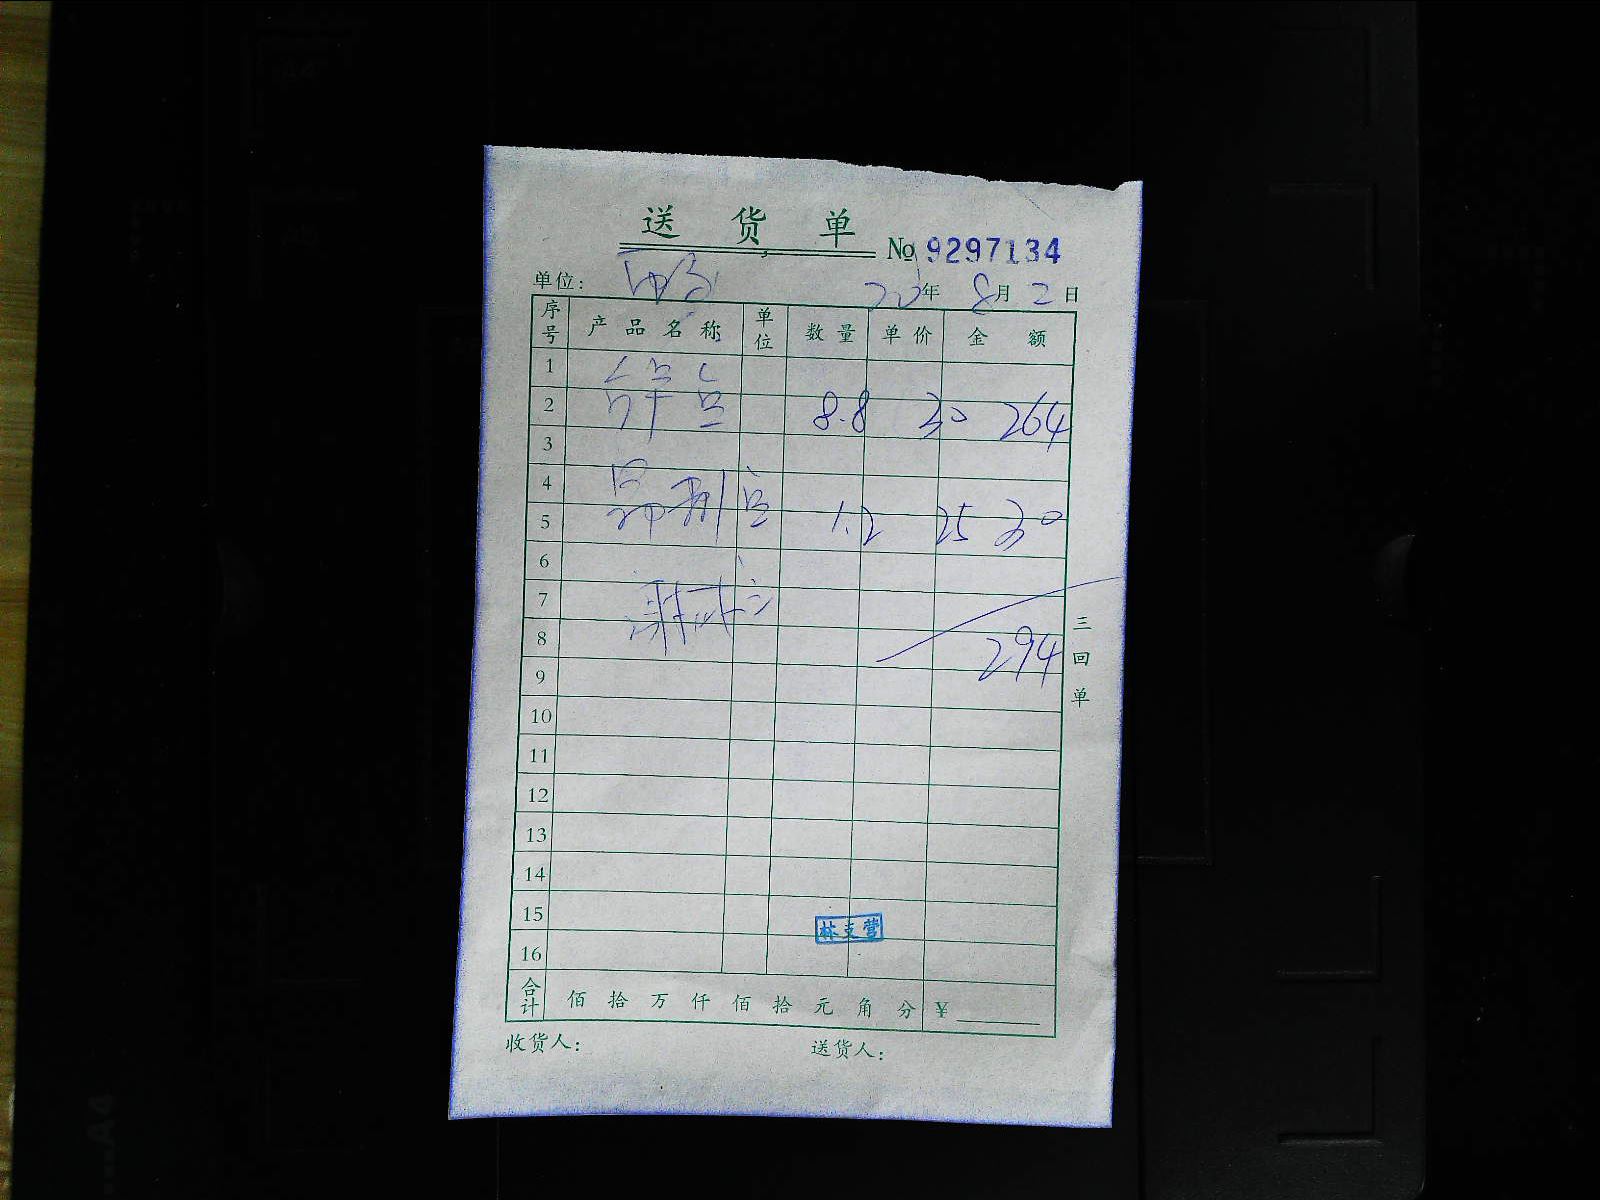 送货单
No 9297134
单位: 20年 8月 2日
序号 产品名称 单位 数量 单价 金额
1
2 8.8 30 264
3
4
5 1.2 25 30
6
7
8 294
9
10
11
12
13
14
15
16
林支营
合计 佰 拾 万 仟 佰 拾 元 角 分 ¥
收货人: 送货人:
三回单